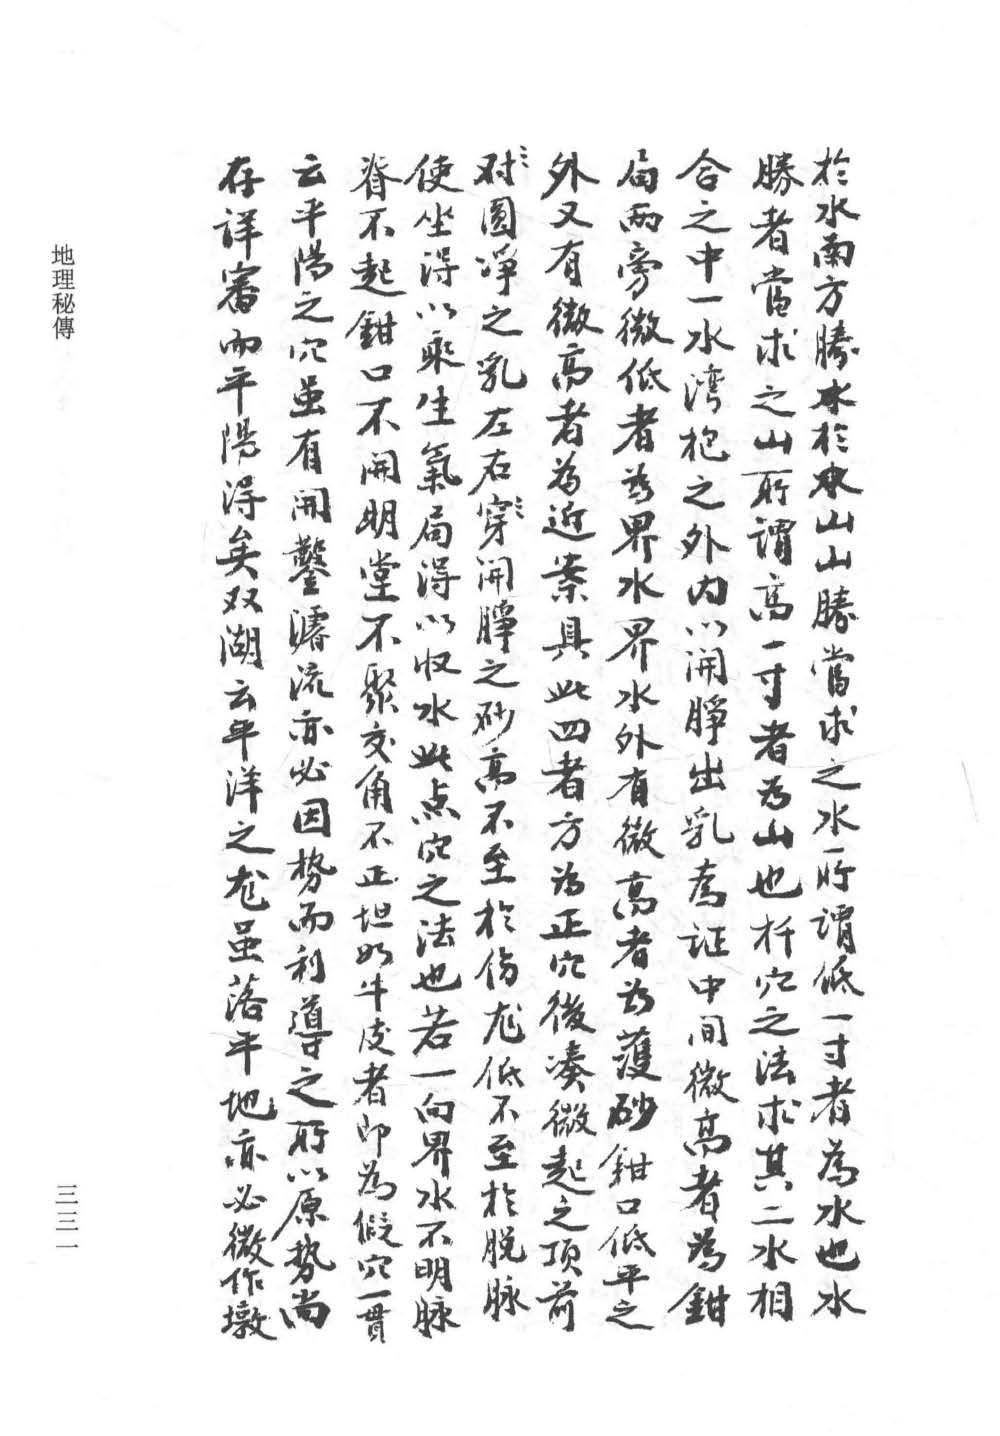 於水南方勝水於水山山勝當求之水所謂低一寸者為水也水
勝者當求之山所謂高一寸者为山也扦穴之法求其二水相
合之中一水湾抱之外内以開睜出乳為证中间微高者為鉗
局两旁微低者為界水界水外有微高者为護砂鉗口低平之
外又有微高者為近案具此四者方为正穴後凑微起之项前
对圓净之乳左右穿開睜之砂高不至於伤龙低不至於脱脉
使坐得以乘生氣局得以收水此点穴之法也若一向界水不明脉
脊不起鉗口不開明堂不聚交角不正坦如牛皮者即為假穴一貫
云平陽之穴虽有開鑿濬流亦必因势而利導之所以原势尚
存详審而平陽得矣双湖云平洋之龙虽落平地亦必微作墩
地理秘傳
三三一